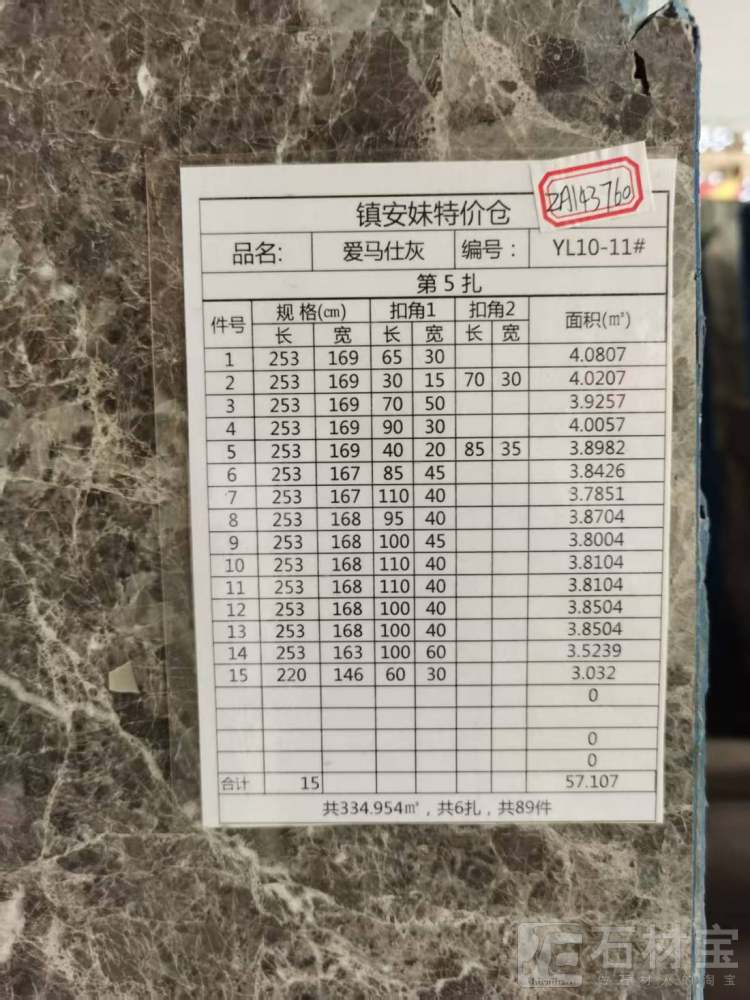 2A143760
镇安妹特价仓
品名: 爱马仕灰 编号： YL10-11#
第 5 扎
件号 规 格(cm) 扣角1 扣角2 面积(㎡)
长 宽 长 宽 长 宽
1 253 169 65 30 4.0807
2 253 169 30 15 70 30 4.0207
3 253 169 70 50 3.9257
4 253 169 90 30 4.0057
5 253 169 40 20 85 35 3.8982
6 253 167 85 45 3.8426
7 253 167 110 40 3.7851
8 253 168 95 40 3.8704
9 253 168 100 45 3.8004
10 253 168 110 40 3.8104
11 253 168 110 40 3.8104
12 253 168 100 40 3.8504
13 253 168 100 40 3.8504
14 253 163 100 60 3.5239
15 220 146 60 30 3.032
0
0
0
合计 15 57.107
共334.954㎡，共6扎，共89件
石材宝
做石材人的淘宝